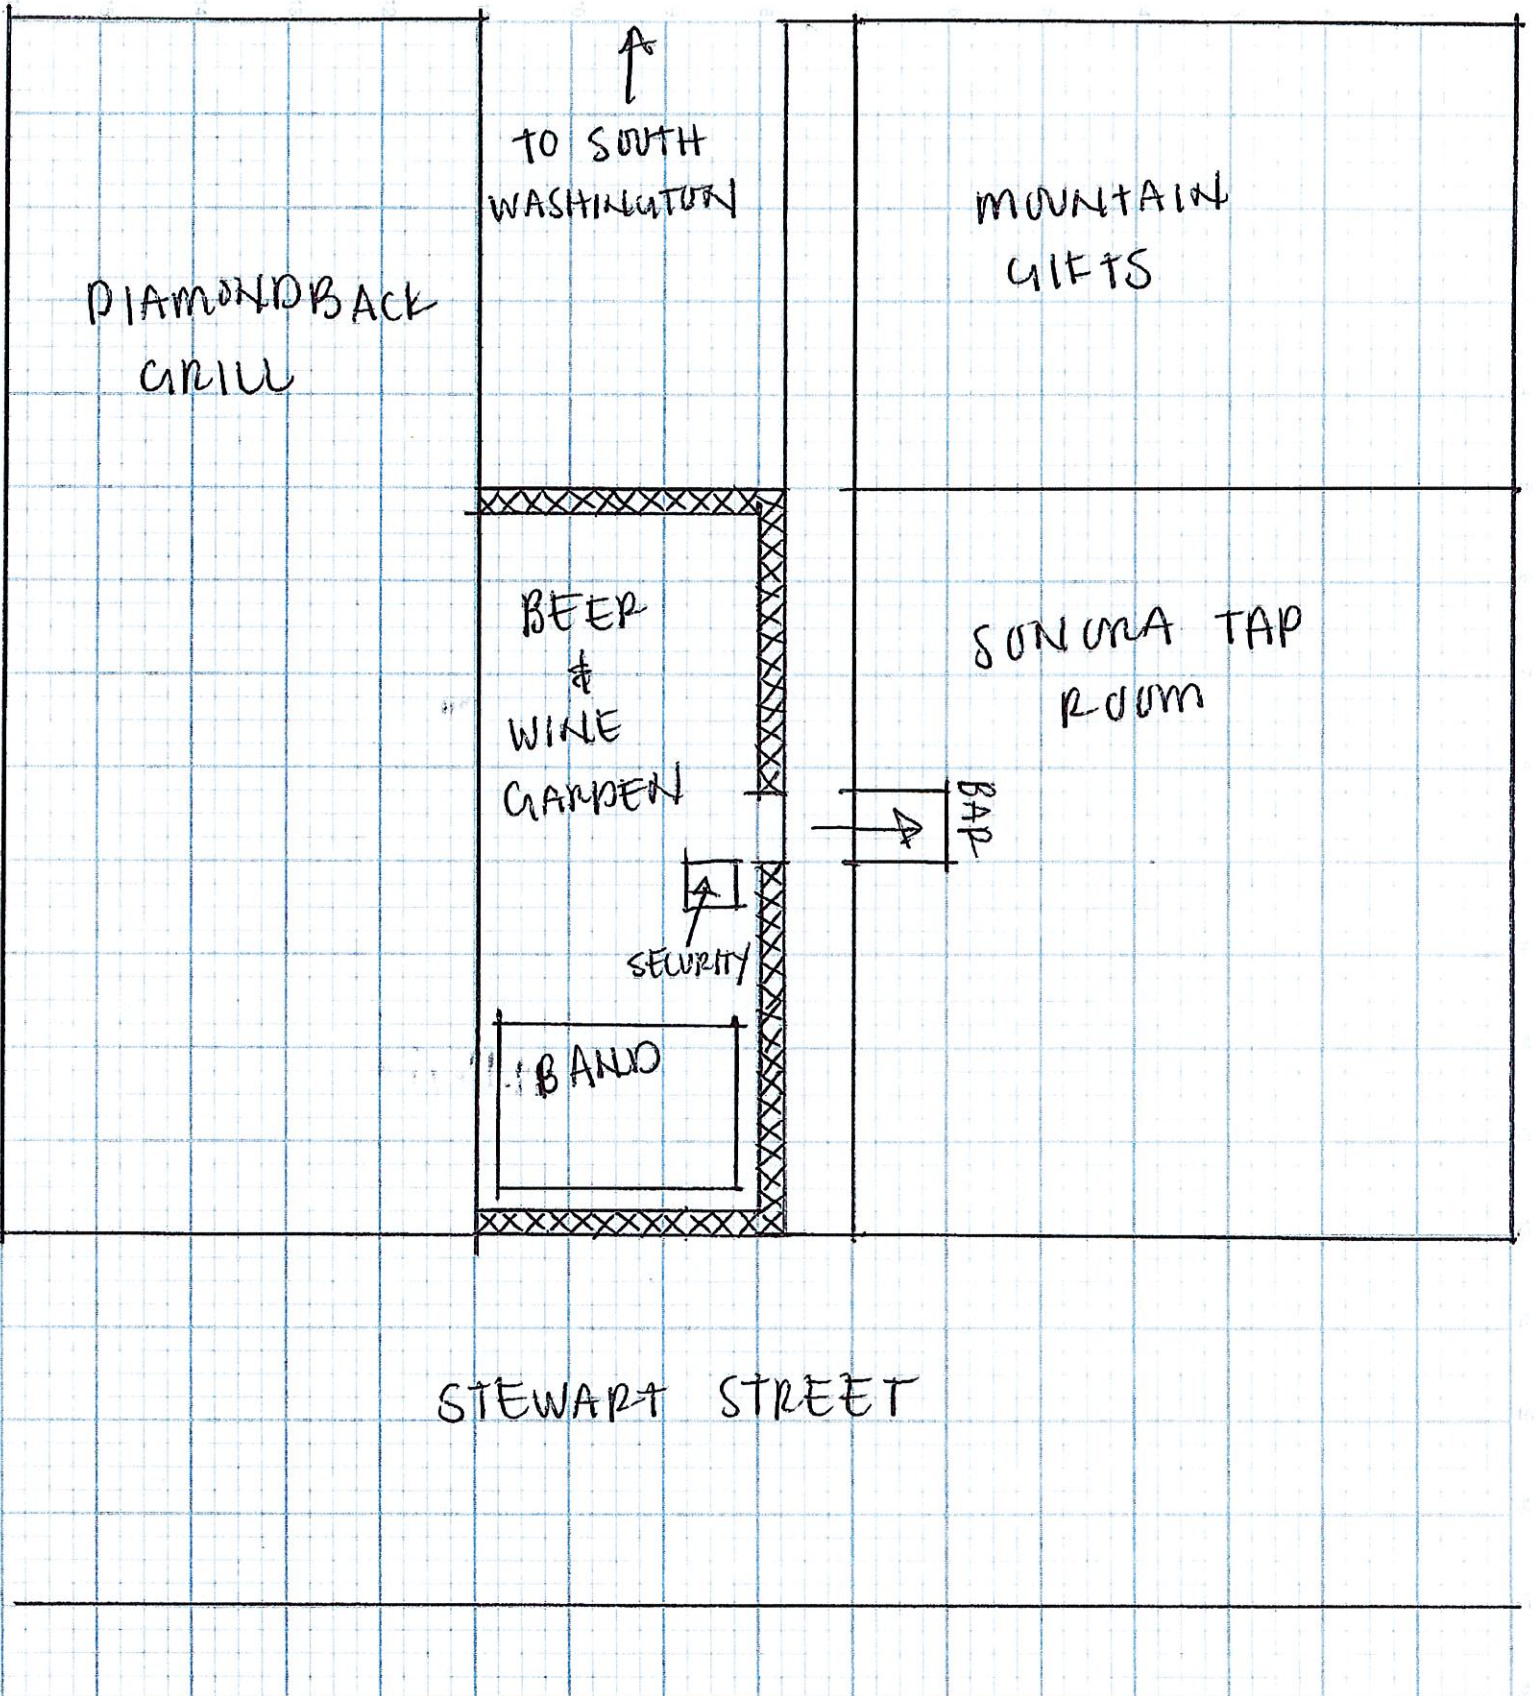 TO SOUTH
WASHINGTON
MOUNTAIN
GIFTS
DIAMONDBACK
GRILL
BEER
&
WINE
GARDEN
SONORA TAP
ROOM
BAR
SECURITY
BAND
STEWART STREET